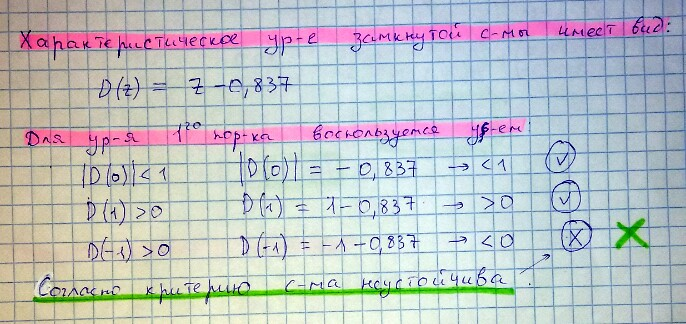 Характеристическое ур-е замкнутой с-мы имеет вид:
D(z) = z - 0,837
Для ур-я 1го пор-ка воспользуемся ур-ем:
|D(0)| < 1 |D(0)| = - 0,837 → < 1 ✓
D(1) > 0 D(1) = 1 - 0,837 → > 0 ✓
D(-1) > 0 D(-1) = -1 - 0,837 → < 0 X X
Согласно критерию с-ма неустойчива.